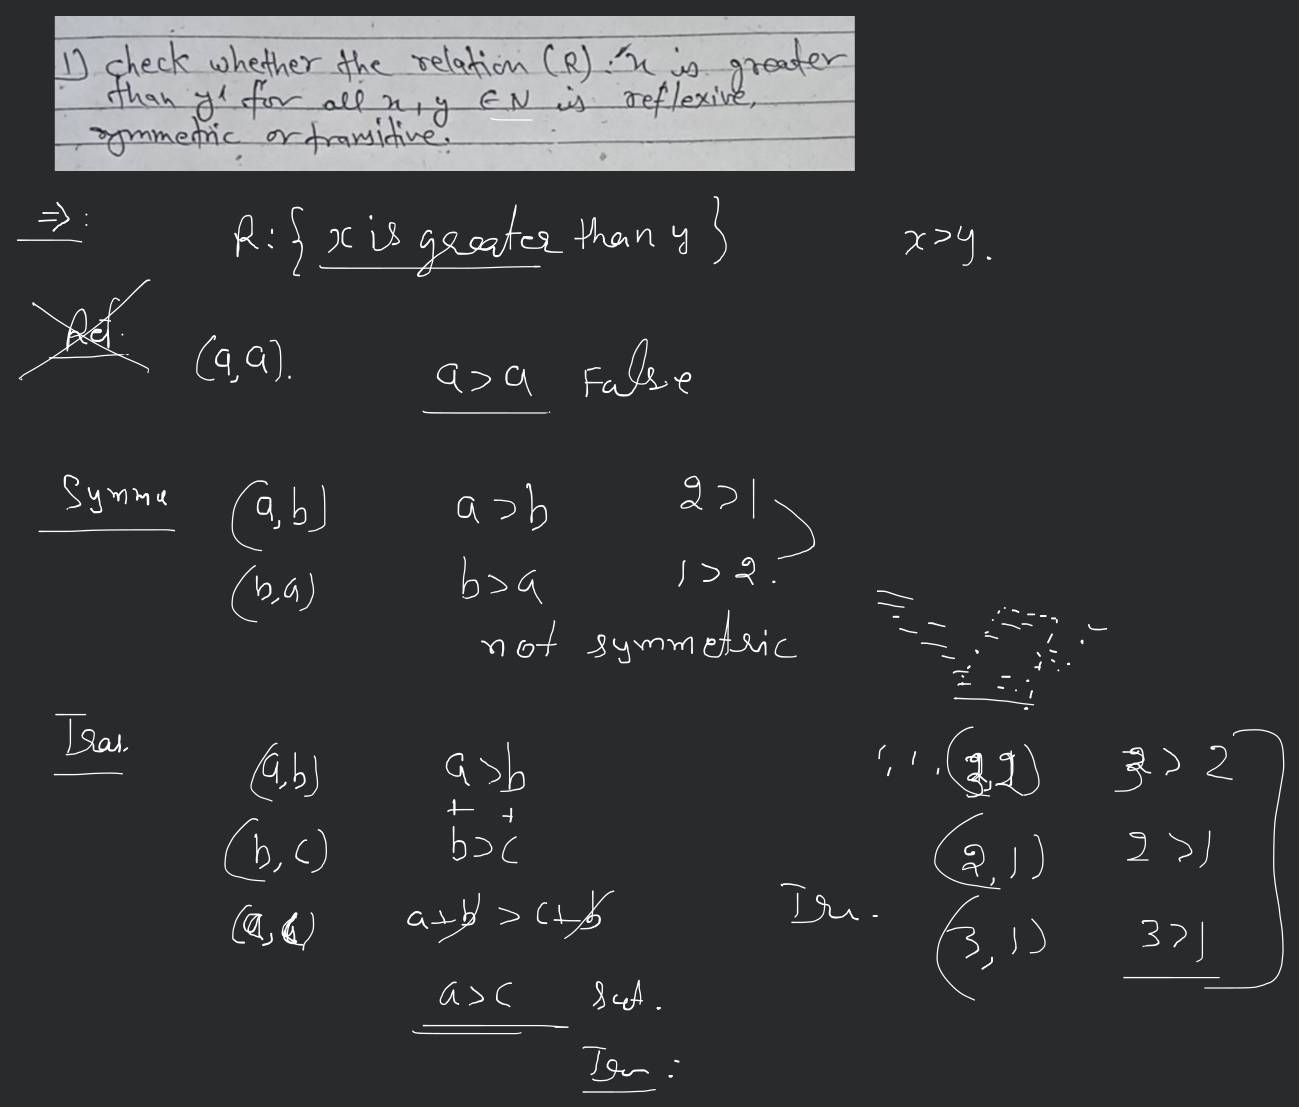 1) check whether the relation (R): 'x is greater
than y' for all x, y ∈ N is reflexive,
symmetric or transitive.
⇒: R: { x is greater than y } x > y.
Ref. (a, a). a > a False
Symme (a, b) a > b 2 > 1
(b, a) b > a 1 > 2.
not symmetric
Tran. (a, b) a > b (3, 2) 3 > 2
+ +
(b, c) b > c (2, 1) 2 > 1
(a, c) a + b > c + b Tra. (3, 1) 3 > 1
a > c sat.
Tra :